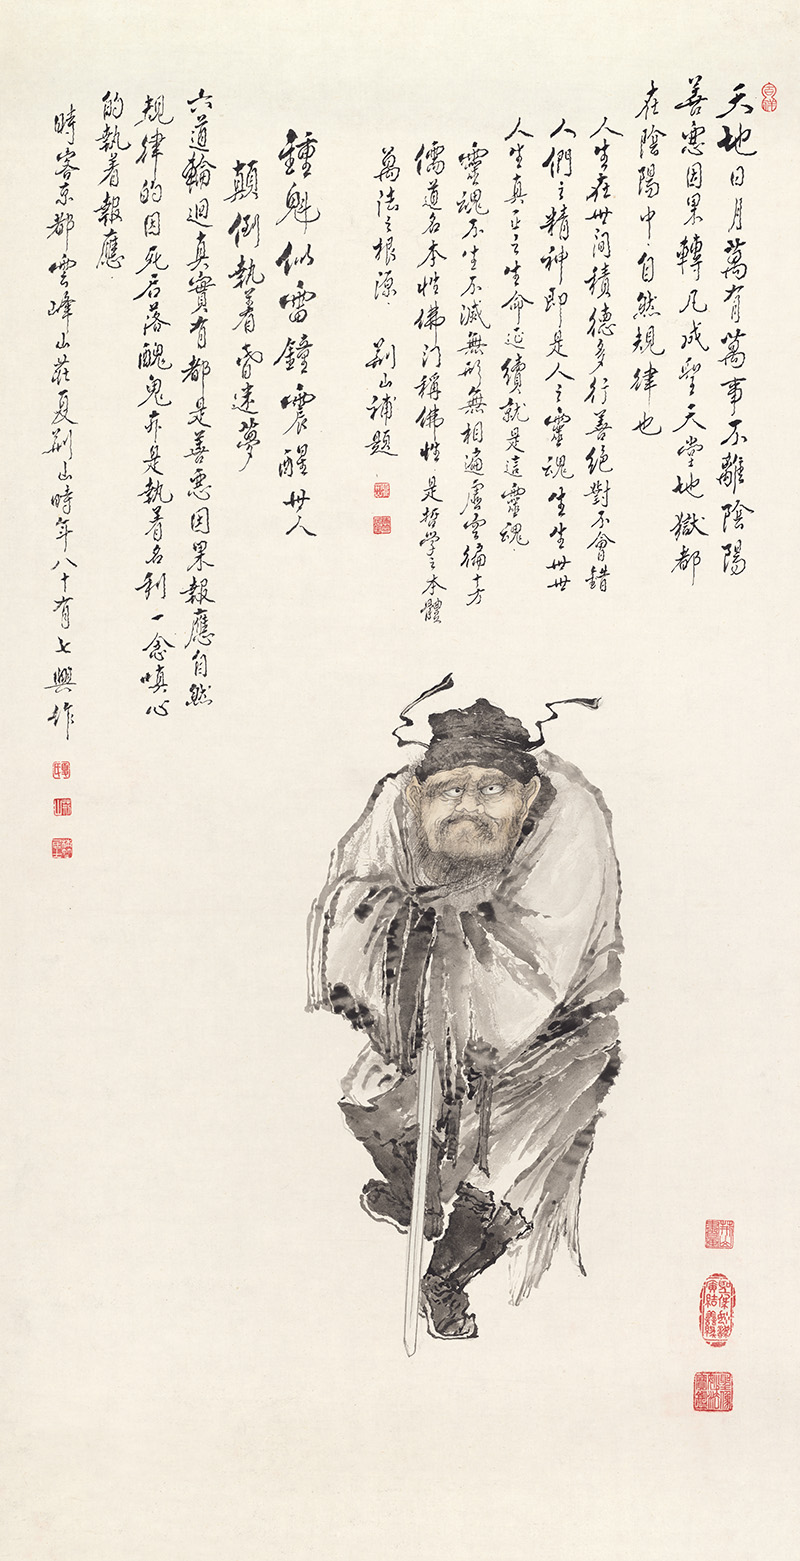 天地日月萬有萬事不離陰陽
善惡因果轉凡成聖天堂地獄都
在陰陽中自然規律也
人生在世间積德多行善绝對不會錯
人們之精神即是人之靈魂生生世世
人生真正之生命延續就是這靈魂
靈魂不生不滅無形無相遍虛空徧十方
儒道名本性佛门稱佛性是哲学之本體
萬法之根源
荆山補題
鍾魁似雷鐘震醒世人
顛倒執着昏迷夢
六道輪迴真實有都是善惡因果報應自然
規律的因死后落醜鬼亦是執着名利一念嗔心
的執着報應
時客京都雲峰山莊夏荆山時年八十有七興作